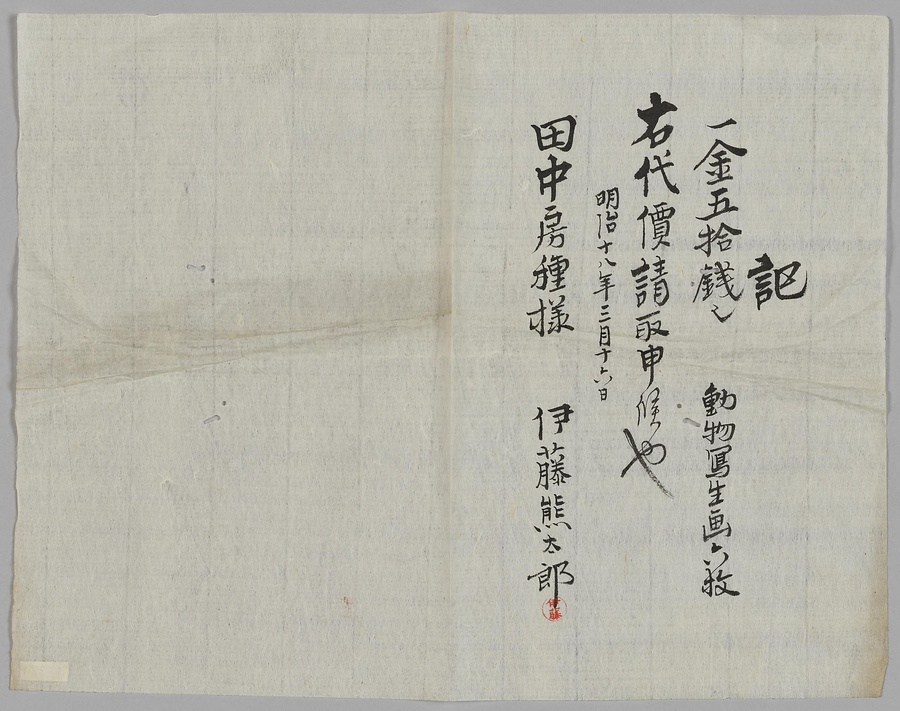 記
一金五拾錢也 動物寫生画六枚
右代價請取申候也
明治十八年三月十六日
伊藤熊太郎
伊藤
田中房種様